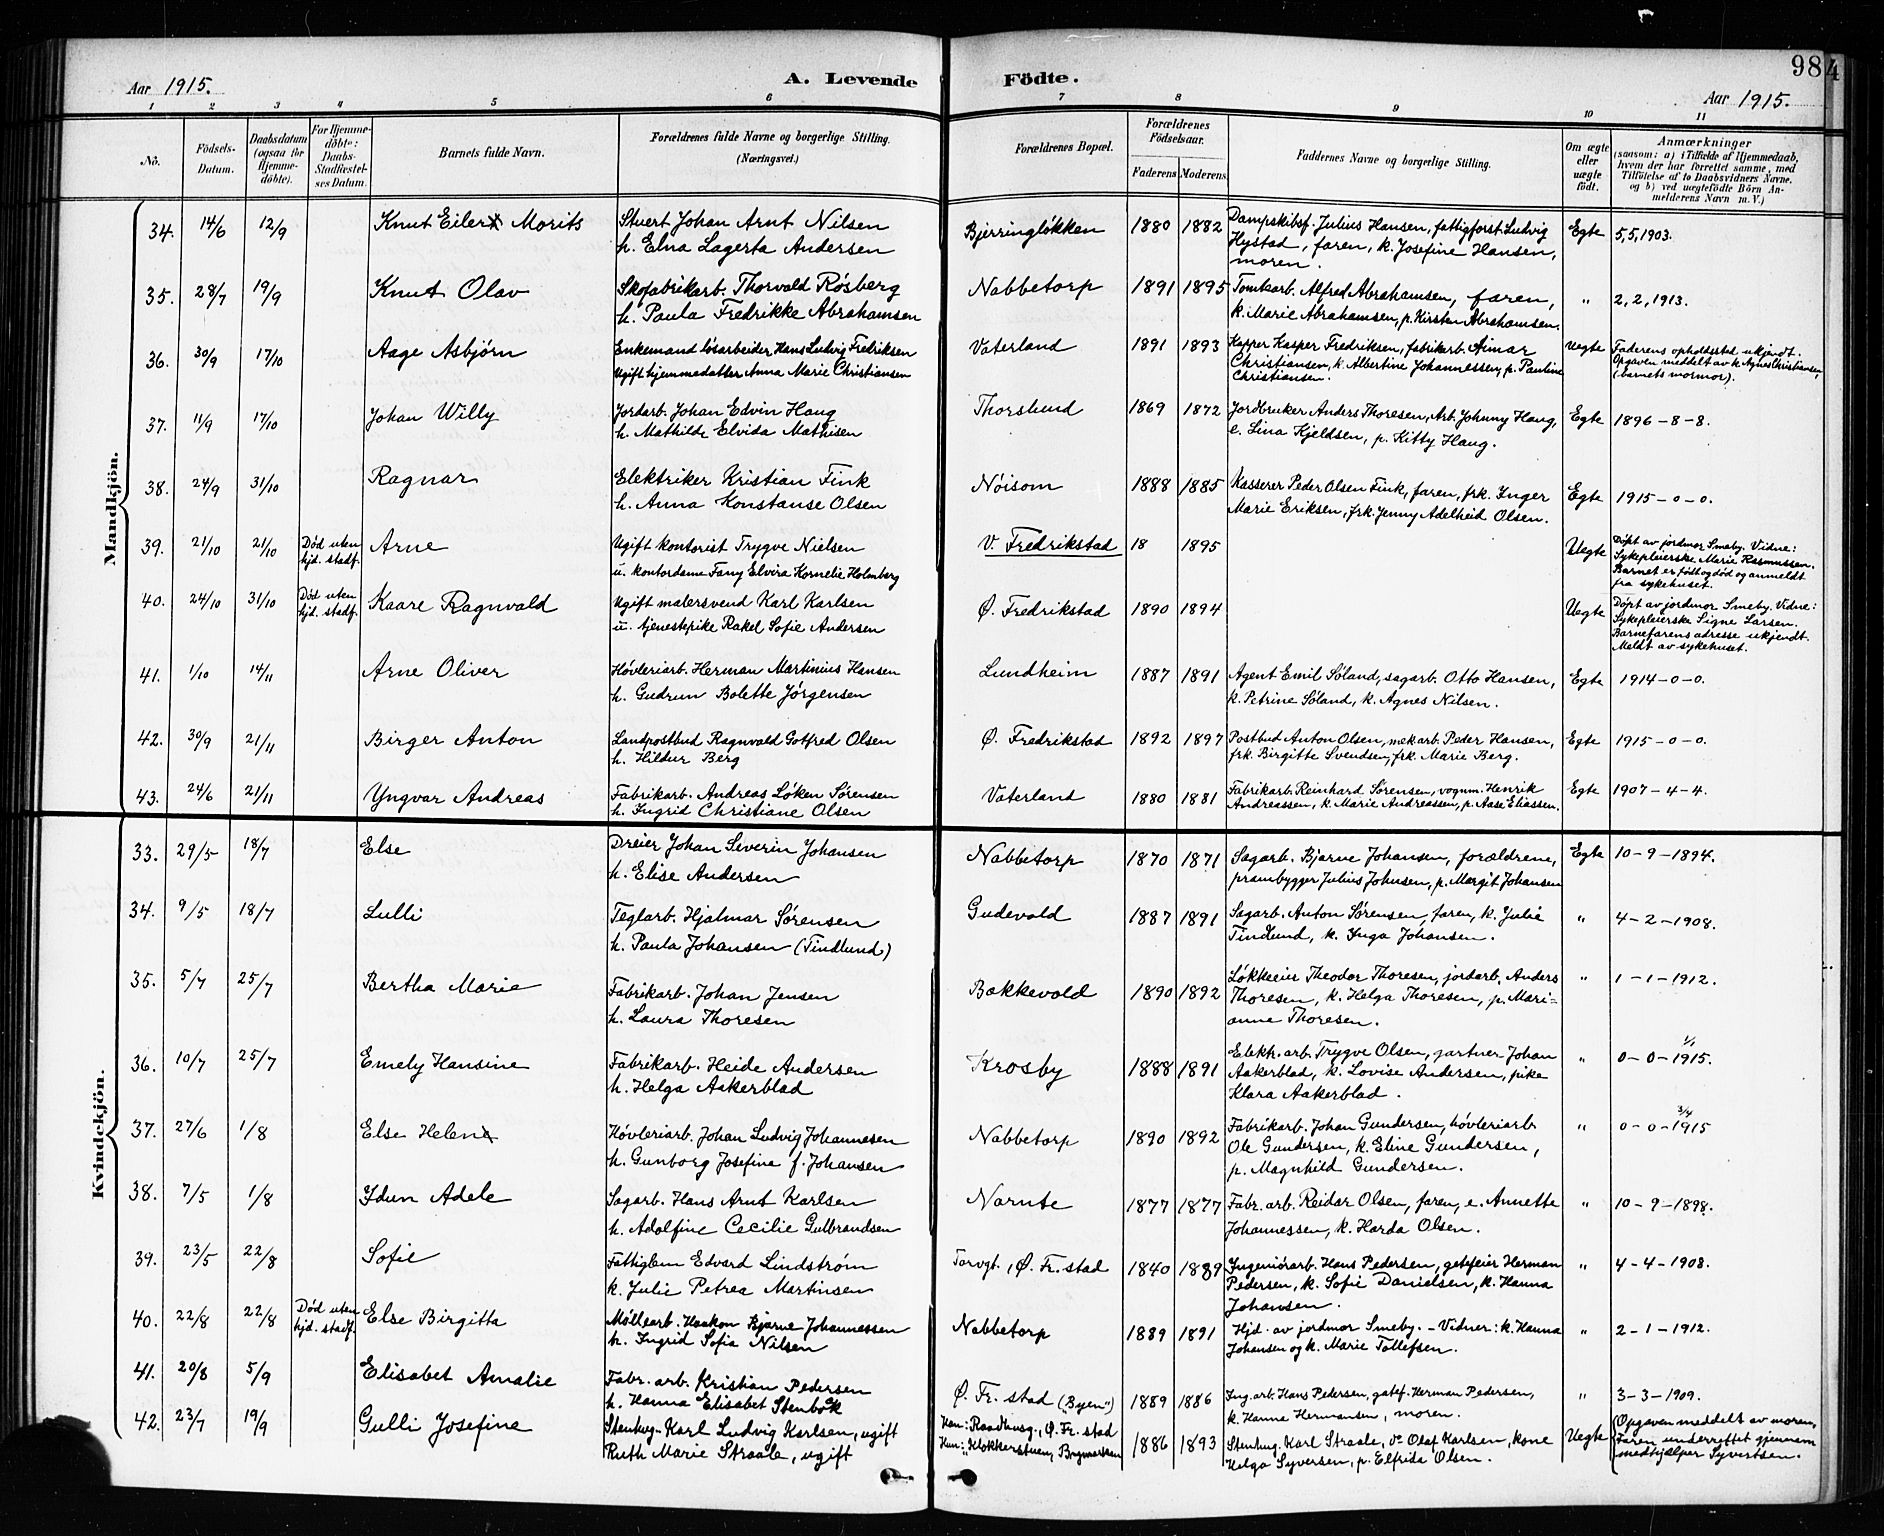 984
Aar 1915.
A. Levende Födte.
Aar 1915.
1 2 3 4 5 6 7 8 9 10 11
No.
Födsels-Datum.
Daabsdatum (ogsaa for Hjemme-döbte).
For Hjemme-döbte: Daabs-Stadfæstel-ses Datum.
Barnets fulde Navn.
Forældrenes fulde Navne og borgerlige Stilling. (Næringsvei.)
Forældrenes Bopæl.
Forældrenes Födselsaar.
Faderens Moderens
Faddernes Navne og borgerlige Stilling.
Om ægte eller uægte født.
Anmærkninger
(saasom: a) i Tilfælde af Hjemmedaab,
hvem der har forrettet samme, med
Tilföielse af to Daabsvidners Navne.
og b) ved uægtefödte Börn An-
melderens Navn m. V.)
Mandkjön.
34. 14/6 12/9 Knut Eiler Morits
Stuert Johan Arnt Nilsen
h. Elna Lagerta Andersen
Bjerringløkken 1880 1882
Dampskibsf. Julius Hansen, fattigforst. Ludvig
Hystad, faren, k. Josefine Hansen,
moren.
Egte 5,5,1903.
35. 28/7 19/9 Knut Olav
Skofabrikarb. Thorvald Røsberg
h. Paula Fredrikke Abrahamsen
Nabbetorp 1891 1895
Tomtearb. Alfred Abrahamsen, faren,
k. Marie Abrahamsen, p. Kirsten Abrahamsen.
" 2,2,1913.
36. 30/9 17/10 Aage Asbjørn
Enkemand løsarbeider Hans Ludvig Fredriksen
Ugift hjemmedatter Anna Marie Christiansen
Vaterland 1891 1893
Kapper Kasper Fredriksen, fabrikarb. Aimar
Christiansen, k. Albertine Johannessen, p. Pauline
Christiansen.
Uegte Faderens opholdssted ukjendt.
Opgaven meddelt av k. Agnes Christiansen,
(barnets mormor).
37. 11/9 17/10 Johan Willy
Jordarb. Johan Edvin Haug
h. Mathilde Elvida Mathisen
Thorslund 1869 1872
Jordbruker Anders Thoresen, Arb. Johnny Haug,
e. Lina Kjeldsen, p. Kitty Haug.
Egte 1896 - 8 - 8.
38. 24/9 31/10 Ragnar
Elektriker Kristian Fink
h. Anna Konstanse Olsen
Nøisom 1888 1885
Kasserer Peder Olsen Fink, faren, frk. Inger
Marie Eriksen, frk. Jenny Adelheid Olsen.
Egte 1915 - 0 - 0.
39. 21/10 21/10 Død uten hjd. stadf. Arne
Ugift kontorist Trygve Nielsen
u. kontordame Fany Elvira Kornelie Holmberg
V. Fredrikstad 18 1895
Uegte Døpt av jordmor Smeby. Vidne:
Sykepleierske Marie Rasmussen.
Barnet er født og død og anmeldt
fra sykehuset.
40. 24/10 31/10 Død uten hjd. stadf. Kaare Ragnvald
Ugift malersvend Karl Karlsen
u. tjenestepike Rakel Sofie Andersen
Ø. Fredrikstad 1890 1894
Uegte Døpt av jordmor Smeby. Vidne:
Sykepleierske Signe Larsen.
Barnefarens adresse ukjendt.
Meldt av sykehuset.
41. 1/10 14/11 Arne Oliver
Høvleriarb. Herman Martinius Hansen
h. Gudrun Bolette Jørgensen
Lundheim 1887 1891
Agent Emil Søland, sagarb. Otto Hansen,
k. Petrine Søland, k. Agnes Nilsen.
Egte 1914 - 0 - 0.
42. 30/9 21/11 Birger Anton
Landpostbud Ragnvald Gotfred Olsen
h. Hildur Berg
Ø. Fredrikstad 1892 1897
Postbud Anton Olsen, mek.arb. Peder Hansen,
frk. Birgitte Svendsen, frk. Marie Berg.
Egte 1915 - 0 - 0.
43. 24/6 21/11 Yngvar Andreas
Fabrikarb. Andreas Løken Sørensen
h. Ingrid Christiane Olsen
Vaterland 1880 1881
Fabrikarb. Reinhard Sørensen, vognm. Henrik
Andreassen, k. Marie Andreassen, p. Aase Eliassen.
Egte 1907 - 4 - 4.
Kvindekjön.
33. 29/5 18/7 Else
Dreier Johan Severin Johansen
h. Elise Andersen
Nabbetorp 1870 1871
Sagarb. Bjarne Johansen, forældrene,
prambygger Julius Johnsen, p. Margit Johansen
Egte 10 - 9 - 1894.
34. 9/5 18/7 Lulli
Teglarb. Hjalmar Sørensen
h. Paula Johansen (Tindlund)
Gudevold 1887 1891
Sagarb. Anton Sørensen, faren, k. Julie
Tindlund, k. Inga Johansen.
" 4 - 2 - 1908.
35. 5/7 25/7 Bertha Marie
Fabrikarb. Johan Jensen
h. Laura Thoresen
Bakkevold 1890 1892
Løkkeeier Theodor Thoresen, jordarb. Anders
Thoresen, k. Helga Thoresen, p. Mari-
anne Thoresen.
" 1 - 1 - 1912.
36. 10/7 25/7 Emely Hansine
Fabrikarb. Heide Andersen
h. Helga Aakerblad
Krosby 1888 1891
Elekh. arb. Trygve Olsen, gartner Johan
Aakerblad, k. Lovise Andersen, pike
Klara Aakerblad.
" 0 - 0 - 1/1 1915.
37. 27/6 1/8 Else Helene
Høvleriarb. Johan Ludvig Johannesen
h. Gunborg Josefine f. Johansen
Nabbetorp 1890 1892
Fabrikarb. Johan Gundersen, høvleriarb
Ole Gundersen, k. Eline Gundersen,
p. Magnhild Gundersen.
" 0 - 0 - 3/4 1915
38. 7/5 1/8 Idun Adele
Sagarb. Hans Arnt Karlsen
h. Adolfine Cecilie Gulbrandsen
Narnte 1877 1877
Fabr. arb. Reidar Olsen, faren, e. Annette
Johannessen, k. Harda Olsen.
" 10 - 9 - 1898.
39. 23/5 22/8 Sofie
Fattiglem Edvard Lindstrøm
k. Julie Petrea Martinsen
Torvgt., Ø. Fr.stad 1840 1889
Ingeniørarb. Hans Pedersen, gatefeier Herman
Pedersen, k. Sofie Danielsen, k. Hanna
Johansen.
" 4 - 4 - 1908.
40. 22/8 22/8 Død uten hjd. stadf. Else Birgitta
Møllearb. Haakon Bjarne Johannessen
h. Ingrid Sofia Nilsen
Nabbetorp 1889 1891
Hjd. av jordmor Smeby. - Vidner: k. Hanna
Johansen og k. Marie Tollefsen.
" 2 - 1 - 1912.
41. 20/8 5/9 Elisabet Amalie
Fabr. arb. Kristian Pedersen
h. Hanna Elisabet Stenbök
Ø. Fr. stad ("Byen") 1889 1886
Ing. arb. Hans Petersen, gatef. Herman Pedersen,
k. Hanna Hermansen, moren.
" 3 - 3 - 1909.
42. 23/7 19/9 Gulli Josefine
Stenhug. Karl Ludvig Karlsen, ugift
Ruth Marie Straale, ugift
Han: Raadhusg., Ø. Fr. stad
Hun: Klokkerstuen, Bymarken
1886 1893
Stenhug. Karl Straale, do Olaf Karlsen, kone
Helga Syversen, p. Elfrida Olsen.
Uegte (Opgaven meddelt av moren,
Faren underrettet gjennem
medhjælper Syvertsen.